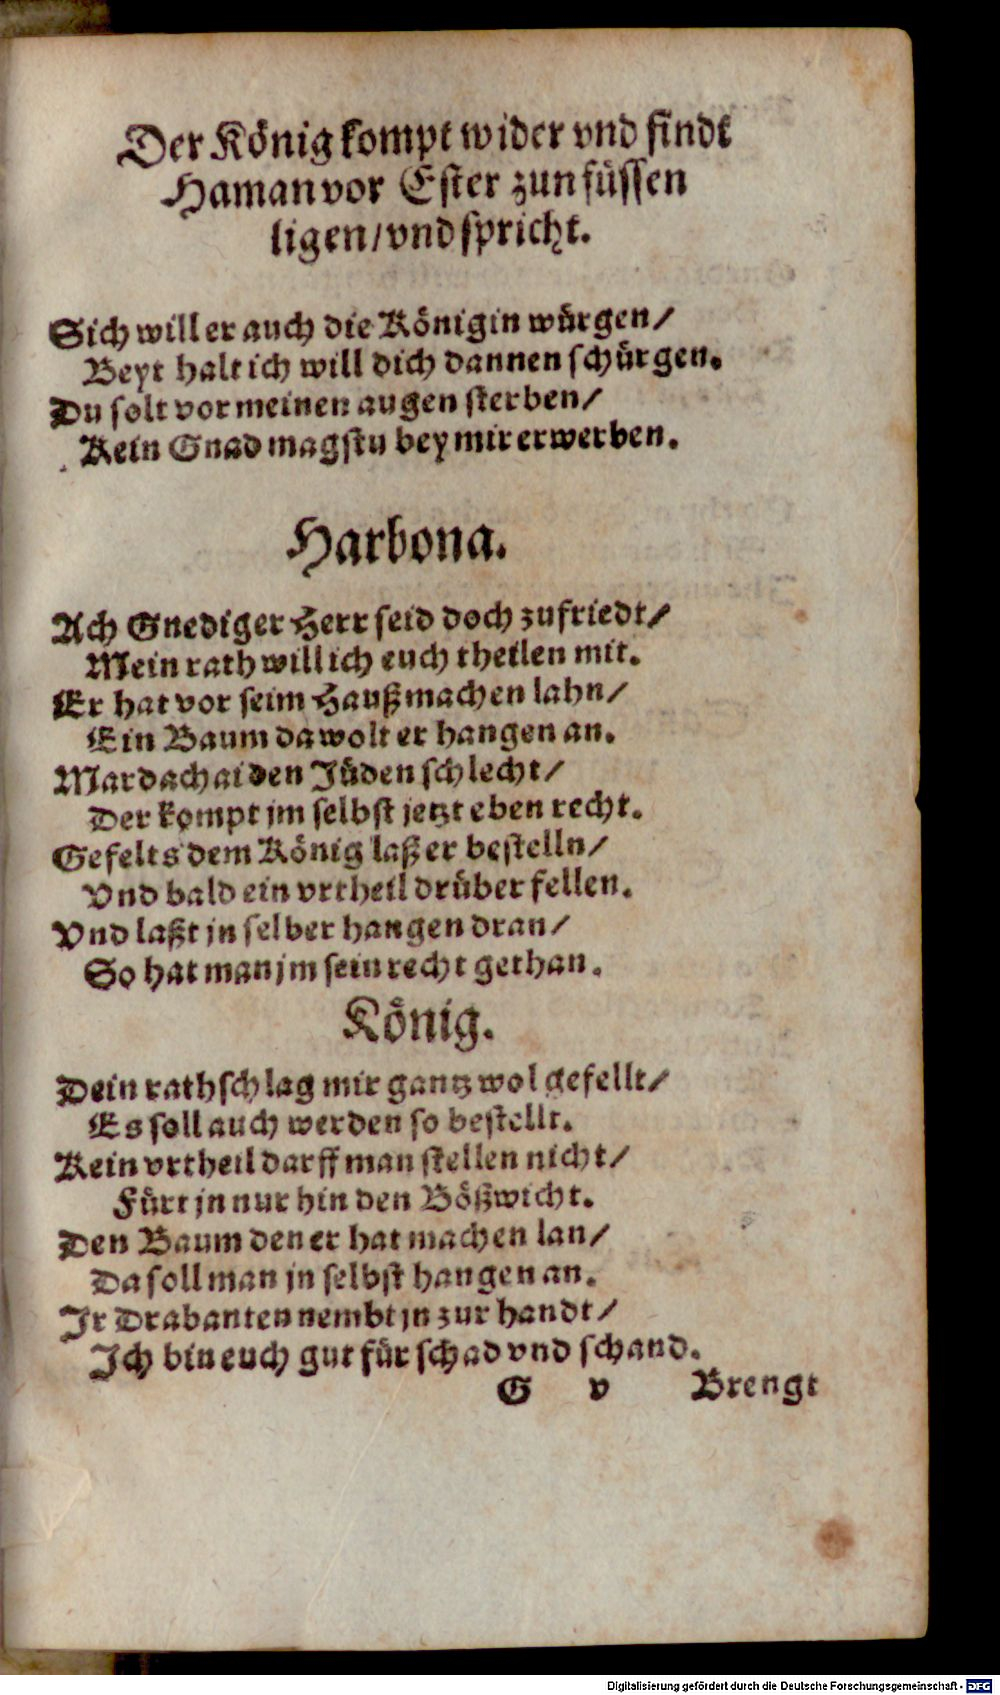 Der König kompt wider vnd findt
Haman vor Ester zun füssen
ligen/ vnd spricht.
Sich will er auch die Königin würgen/
Beyt halt ich will dich dannen schürgen.
Du solt vor meinen augen sterben/
Kein Gnad magstu bey mir erwerben.
Harbona.
Ach Gnediger Herr seid doch zufriedt/
Mein rath will ich euch theilen mit.
Er hat vor seim Hauß machen lahn/
Ein Baum da wolt er hangen an.
Mardachai den Jüden schlecht/
Der kompt jm selbst jetzt eben recht.
Gefelts dem König laß er bestelln/
Vnd bald ein vrtheil drüber fellen.
Vnd laßt jn selber hangen dran/
So hat man jm sein recht gethan.
König.
Dein rathschlag mir gantz wol gefellt/
Es soll auch werden so bestellt.
Kein vrtheil darff man stellen nicht/
Fürt jn nur hin den Bößwicht.
Den Baum den er hat machen lan/
Da soll man jn selbst hangen an.
Jr Drabanten nembt jn zur handt/
Ich bin euch gut für schad vnd schand.
G v Brengt
Digitalisierung gefördert durch die Deutsche Forschungsgemeinschaft - DFG